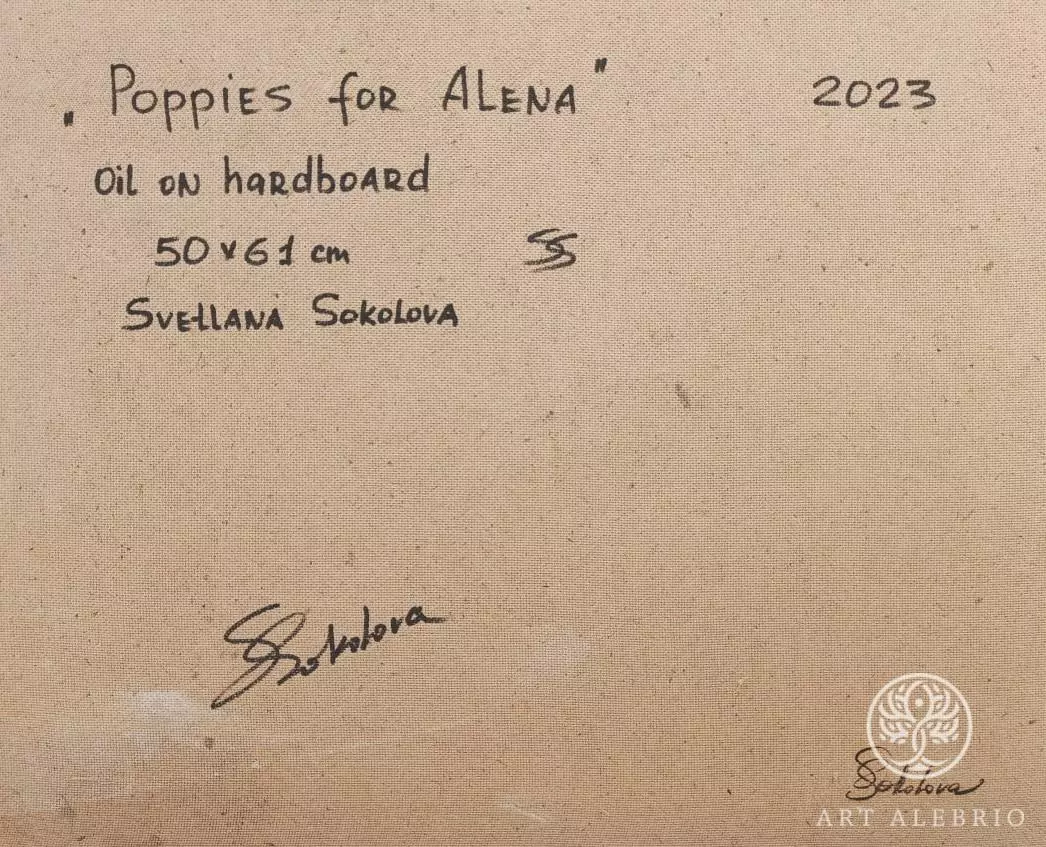 „Poppies for Alena" 2023
Oil on hardboard
50x61 cm SS
Svetlana Sokolova
SSokolova
SSokolova
ART ALEBRIO